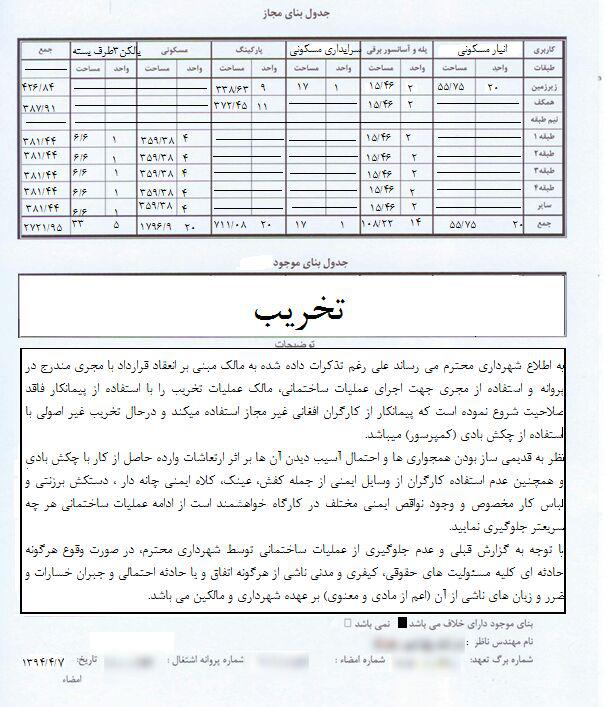 جدول بنای مجاز
کاربری انبار مسکونی پله و آسانسور برقی سرایداری مسکونی پارکینگ مسکونی بالکن۳طرف بسته جمع
طبقات واحد مساحت واحد مساحت واحد مساحت واحد مساحت واحد مساحت واحد مساحت
زیرزمین ۲۰ ۵۵/۷۵ ۲ ۱۵/۴۶ ۱ ۱۷ ۹ ۳۳۸/۶۳ ۴۲۶/۸۴
همکف ۲ ۱۵/۴۶ ۱۱ ۳۷۲/۴۵ ۳۸۷/۹۱
نیم طبقه
طبقه ۱ ۲ ۱۵/۴۶ ۴ ۳۵۹/۳۸ ۱ ۶/۶ ۳۸۱/۴۴
طبقه۲ ۲ ۱۵/۴۶ ۴ ۳۵۹/۳۸ ۱ ۶/۶ ۳۸۱/۴۴
طبقه۳ ۲ ۱۵/۴۶ ۴ ۳۵۹/۳۸ ۱ ۶/۶ ۳۸۱/۴۴
طبقه۴ ۲ ۱۵/۴۶ ۴ ۳۵۹/۳۸ ۱ ۶/۶ ۳۸۱/۴۴
سایر ۲ ۱۵/۴۶ ۴ ۳۵۹/۳۸ ۱ ۶/۶ ۳۸۱/۴۴
جمع ۲۰ ۵۵/۷۵ ۱۴ ۱۰۸/۲۲ ۱ ۱۷ ۲۰ ۷۱۱/۰۸ ۲۰ ۱۷۹۶/۹ ۵ ۳۳ ۲۷۲۱/۹۵
جدول بنای موجود
تخریب
توضیحات
به اطلاع شهرداری محترم می رساند علی رغم تذکرات داده شده به مالک مبنی بر انعقاد قرارداد با مجری مندرج در
پروانه و استفاده از مجری جهت اجرای عملیات ساختمانی، مالک عملیات تخریب را با استفاده از پیمانکار فاقد
صلاحیت شروع نموده است که پیمانکار از کارگران افغانی غیر مجاز استفاده میکند و درحال تخریب غیر اصولی با
استفاده از چکش بادی (کمپرسور) میباشد.
نظر به قدیمی ساز بودن همجواری ها و احتمال آسیب دیدن آن ها بر اثر ارتعاشات وارده حاصل از کار با چکش بادی
و همچنین عدم استفاده کارگران از وسایل ایمنی از جمله کفش، عینک، کلاه ایمنی چانه دار ، دستکش برزنتی و
لباس کار مخصوص و وجود نواقص ایمنی مختلف در کارگاه خواهشمند است از ادامه عملیات ساختمانی هر چه
سریعتر جلوگیری نمایید.
با توجه به گزارش قبلی و عدم جلوگیری از عملیات ساختمانی توسط شهرداری محترم، در صورت وقوع هرگونه
حادثه ای کلیه مسئولیت های حقوقی، کیفری و مدنی ناشی از هرگونه اتفاق و یا حادثه احتمالی و جبران خسارات و
ضرر و زیان های ناشی از آن (اعم از مادی و معنوی) بر عهده شهرداری و مالکین می باشد.
بنای موجود دارای خلاف می باشد نمی باشد
نام مهندس ناظر :
شماره برگ تعهد: شماره امضاء : شماره پروانه اشتغال : تاریخ: ۱۳۹۴/۴/۷
امضاء